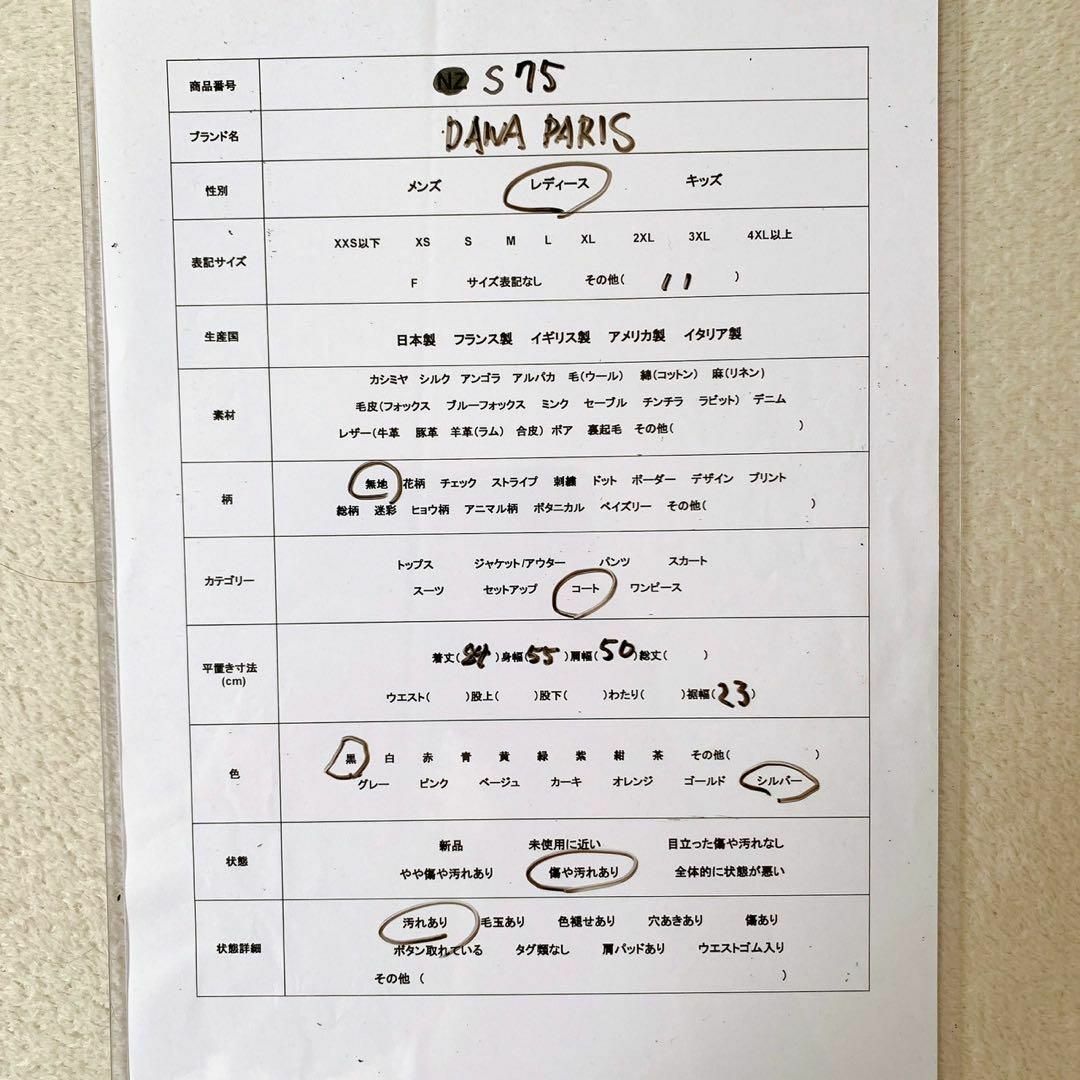 商品番号 NZ S 75
ブランド名 DAWA PARIS
性別 メンズ レディース キッズ
表記サイズ XXS以下 XS S M L XL 2XL 3XL 4XL以上
F サイズ表記なし その他( 11 )
生産国 日本製 フランス製 イギリス製 アメリカ製 イタリア製
素材 カシミヤ シルク アンゴラ アルパカ 毛(ウール) 綿(コットン) 麻(リネン)
毛皮(フォックス ブルーフォックス ミンク セーブル チンチラ ラビット) デニム
レザー(牛革 豚革 羊革(ラム) 合皮) ボア 裏起毛 その他( )
柄 無地 花柄 チェック ストライプ 刺繍 ドット ボーダー デザイン プリント
総柄 迷彩 ヒョウ柄 アニマル柄 ボタニカル ペイズリー その他( )
カテゴリー トップス ジャケット/アウター パンツ スカート
スーツ セットアップ コート ワンピース
平置き寸法(cm) 着丈( )身幅(55)肩幅(50)総丈( )
ウエスト( )股上( )股下( )わたり( )裾幅(23)
色 黒 白 赤 青 黄 緑 紫 紺 茶 その他( )
グレー ピンク ベージュ カーキ オレンジ ゴールド シルバー
状態 新品 未使用に近い 目立った傷や汚れなし
やや傷や汚れあり 傷や汚れあり 全体的に状態が悪い
状態詳細 汚れあり 毛玉あり 色褪せあり 穴あきあり 傷あり
ボタン取れている タグ類なし 肩パッドあり ウエストゴム入り
その他 ( )